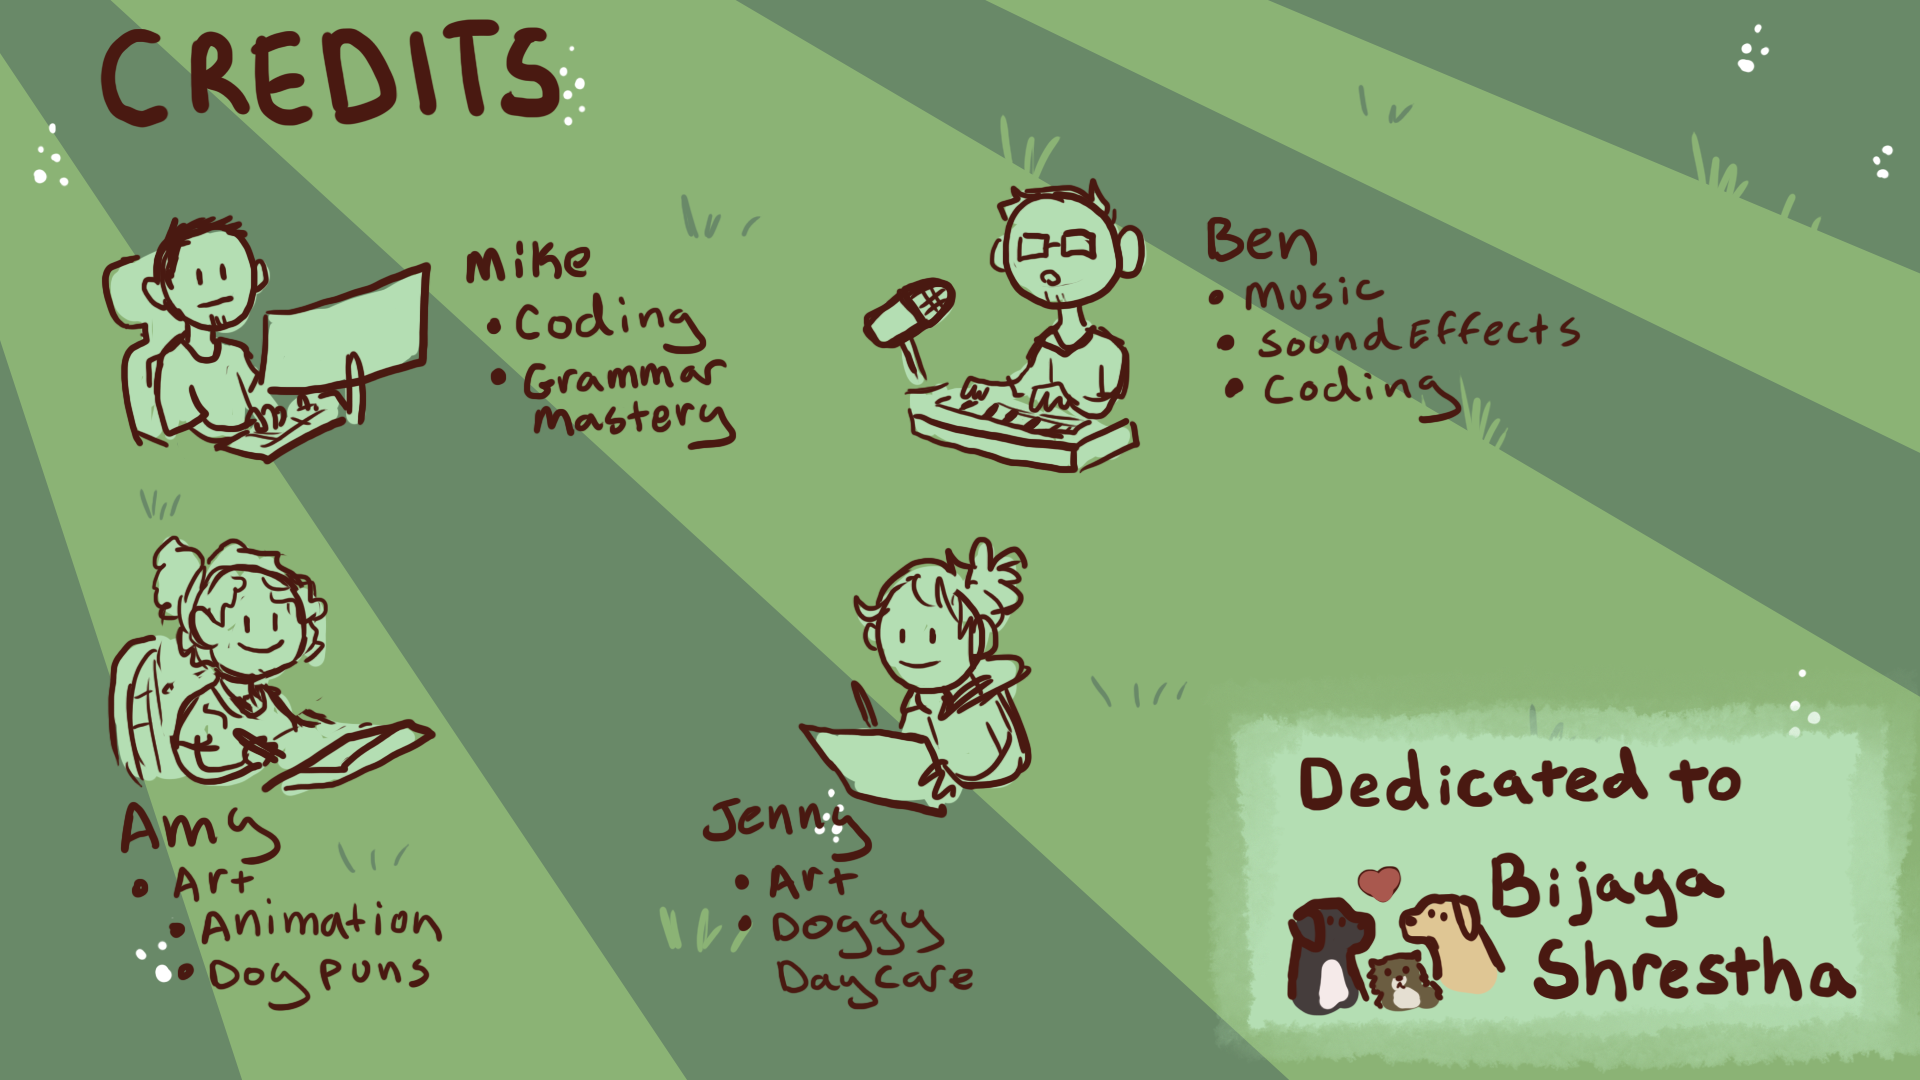 CREDITS
Mike
• Coding
• Grammar
Mastery
Ben
• Music
• Sound Effects
• Coding
Amy
• Art
• Animation
• Dog Puns
Jenny
• Art
• Doggy
Daycare
Dedicated to
Bijaya
Shrestha